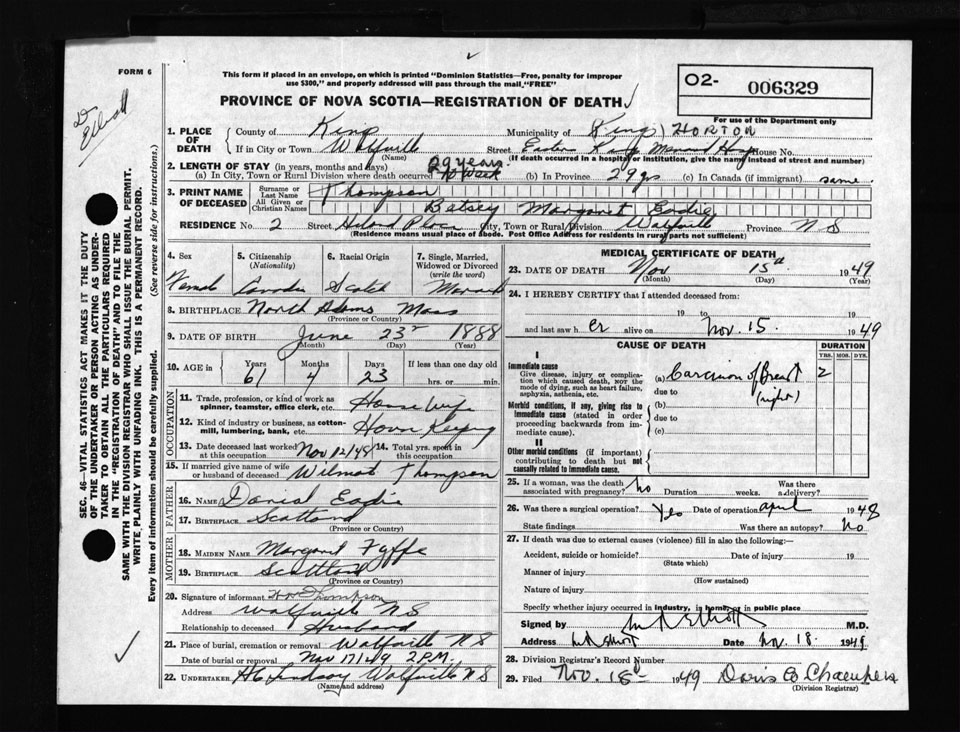 ✓
FORM 6
D Elliott
This form if placed in an envelope, on which is printed "Dominion Statistics—Free, penalty for improper
use $300," and properly addressed will pass through the mail "FREE"
PROVINCE OF NOVA SCOTIA—REGISTRATION OF DEATH ✓
O2- 006329
For use of the Department only
1. PLACE OF DEATH { County of King Municipality of Kings HORTON
If in City or Town Wolfville Street Eastern Kings House No.
(Name) (If death occurred in a hospital or institution, give the name instead of street and number)
2. LENGTH OF STAY (in years, months and days) 29 years
(a) In City, Town or Rural Division where death occurred (b) In Province 29 yrs (c) In Canada (if immigrant) same
3. PRINT NAME OF DECEASED { Surname or Last Name Thompson
All Given or Christian Names Betsey Margaret Eadie
RESIDENCE No. 2 Street City, Town or Rural Division Wolfville Province N S
(Residence means usual place of abode. Post Office Address for residents in rural parts not sufficient)
4. Sex Female
5. Citizenship (Nationality)
6. Racial Origin Scotch
7. Single, Married, Widowed or Divorced (write the word) Married
8. BIRTHPLACE North Adams Mass
(Province or Country)
9. DATE OF BIRTH June 23 1888
(Month) (Day) (Year)
10. AGE in { Years 61 Months 4 Days 23 If less than one day old
hrs. or min.
OCCUPATION
11. Trade, profession or kind of work as spinner, teamster, office clerk, etc. House Wife
12. Kind of industry or business, as cotton-mill, lumbering, bank, etc. House Keeping
13. Date deceased last worked at this occupation Nov 12/48 14. Total yrs. spent in this occupation
15. If married give name of wife or husband of deceased Wilmot Thompson
FATHER
16. NAME Danial Eadie
17. BIRTHPLACE Scotland
(Province or Country)
MOTHER
18. MAIDEN NAME Margaret Fyffe
19. BIRTHPLACE Scotland
(Province or Country)
20. Signature of informant Thompson
Address Wolfville N S
Relationship to deceased Husband
21. Place of burial, cremation or removal Wolfville N S
Date of burial or removal Nov 17/49 2 P.M.
22. UNDERTAKER Lindsay Wolfville N S
(Name and address)
MEDICAL CERTIFICATE OF DEATH
23. DATE OF DEATH Nov 15th 1949
(Month) (Day) (Year)
24. I HEREBY CERTIFY that I attended deceased from:
19 to 19
and last saw h er alive on Nov. 15 1949
CAUSE OF DEATH DURATION
YRS. MOS. DYS.
I
Immediate cause
Give disease, injury or complication which caused death, NOT the mode of dying, such as heart failure, asphyxia, asthenia, etc.
(a) Carcinom of Breast 2
due to (right)
Morbid conditions, if any, giving rise to immediate cause (stated in order proceeding backwards from immediate cause).
(b)
due to
(c)
II
Other morbid conditions (if important) contributing to death but not causally related to immediate cause.
25. If a woman, was the death associated with pregnancy? No Duration weeks. Was there a delivery?
26. Was there a surgical operation? Yes Date of operation April 1948
State findings Was there an autopsy? No
27. If death was due to external causes (violence) fill in also the following:—
Accident, suicide or homicide? Date of injury 19
(State which)
Manner of injury
(How sustained)
Nature of injury
Specify whether injury occurred in industry, in home, or in public place
Signed by Elliott M.D.
Address Date Nov. 18. 1949
28. Division Registrar's Record Number
29. Filed Nov. 18 1949 Doris
(Division Registrar)
SEC. 46—VITAL STATISTICS ACT MAKES IT THE DUTY
OF THE UNDERTAKER OR PERSON ACTING AS UNDER-
TAKER TO OBTAIN ALL THE PARTICULARS REQUIRED
IN THE "REGISTRATION OF DEATH" AND TO FILE THE
SAME WITH THE DIVISION REGISTRAR WHO SHALL ISSUE THE BURIAL PERMIT.
WRITE PLAINLY WITH UNFADING INK. THIS IS A PERMANENT RECORD.
Every item of information should be carefully supplied. (See reverse side for instructions.)
✓